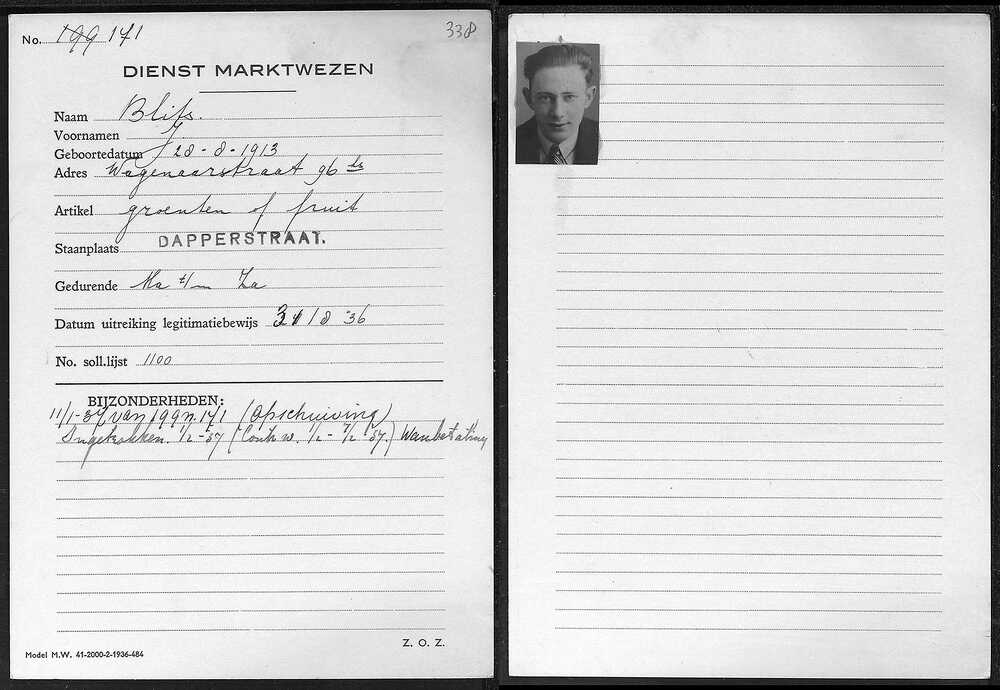 No. 199 171
338
DIENST MARKTWEZEN
Naam Blits.
Voornamen J
Geboortedatum 28-8-1913
Adres Wagenaarstraat 96 hs
Artikel groenten of fruit
Staanplaats DAPPERSTRAAT.
Gedurende Ma t/m Za
Datum uitreiking legitimatiebewijs 31/8 '36
No. soll.lijst 1100
BIJZONDERHEDEN:
11/1-37 van 199 n. 171 (Opschuiving)
Ingetrokken. 1/2-'37 (Contr w. 1/2 - 7/2 '37.) Wanbetaling
Z. O. Z.
Model M.W. 41-2000-2-1936-484